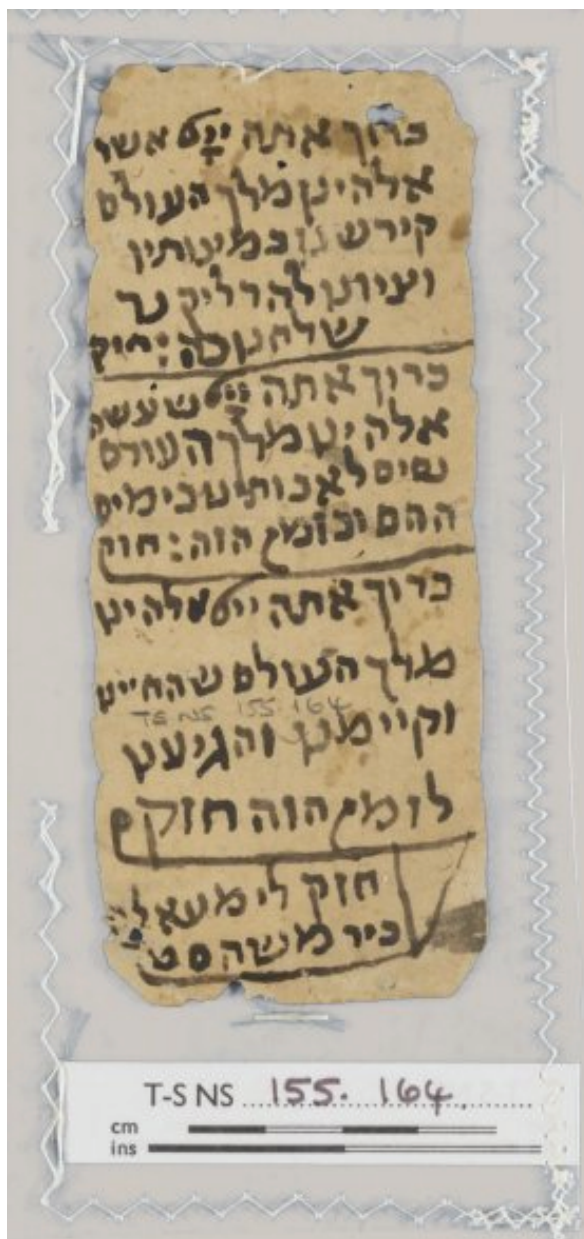 ברוך אתה ייי אשר
אלהינו מלך העולם
קידשנו במיצותיו
וציונו להדליק נר
שלחנוכה: חזק
ברוך אתה ייי שעשה
אלהינו מלך העולם
ניסים לאבותינו בימים
ההם ובזמן הזה: חזק
ברוך אתה ייי אלהינו
מלך העולם שהחיינו
T-S NS 155.164
וקיימנו והגיענו
לזמן הזה חזק
חזק לי
משה סט
T-S NS 155.164
cm
ins